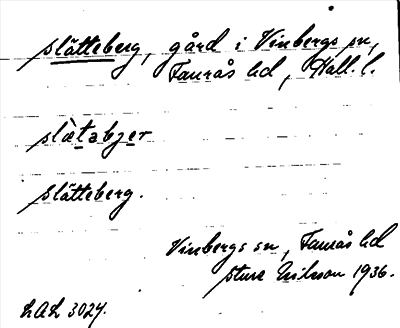 slätteberg, gård i Vinbergs sn,
Faurås hd, Hall. l.
slætabjer
Slätteberg.
Vinbergs sn, Faurås hd
Sture Nilsson 1936.
LAL 3024.